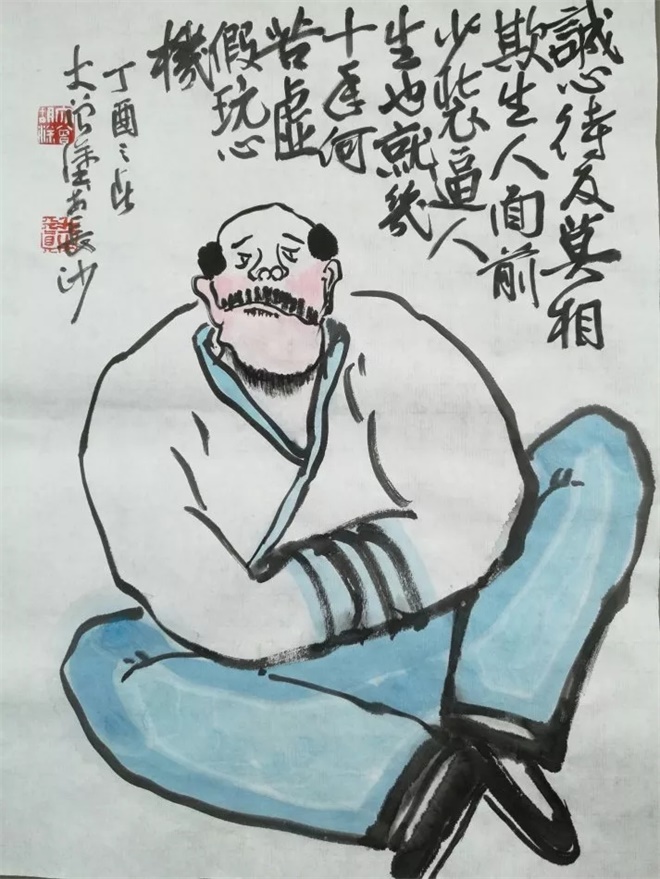 誠心待友莫相
欺生人面前
少裝逼人
生也就幾
十年何
苦虛
假玩心
機
丁酉
大曾塗於長沙